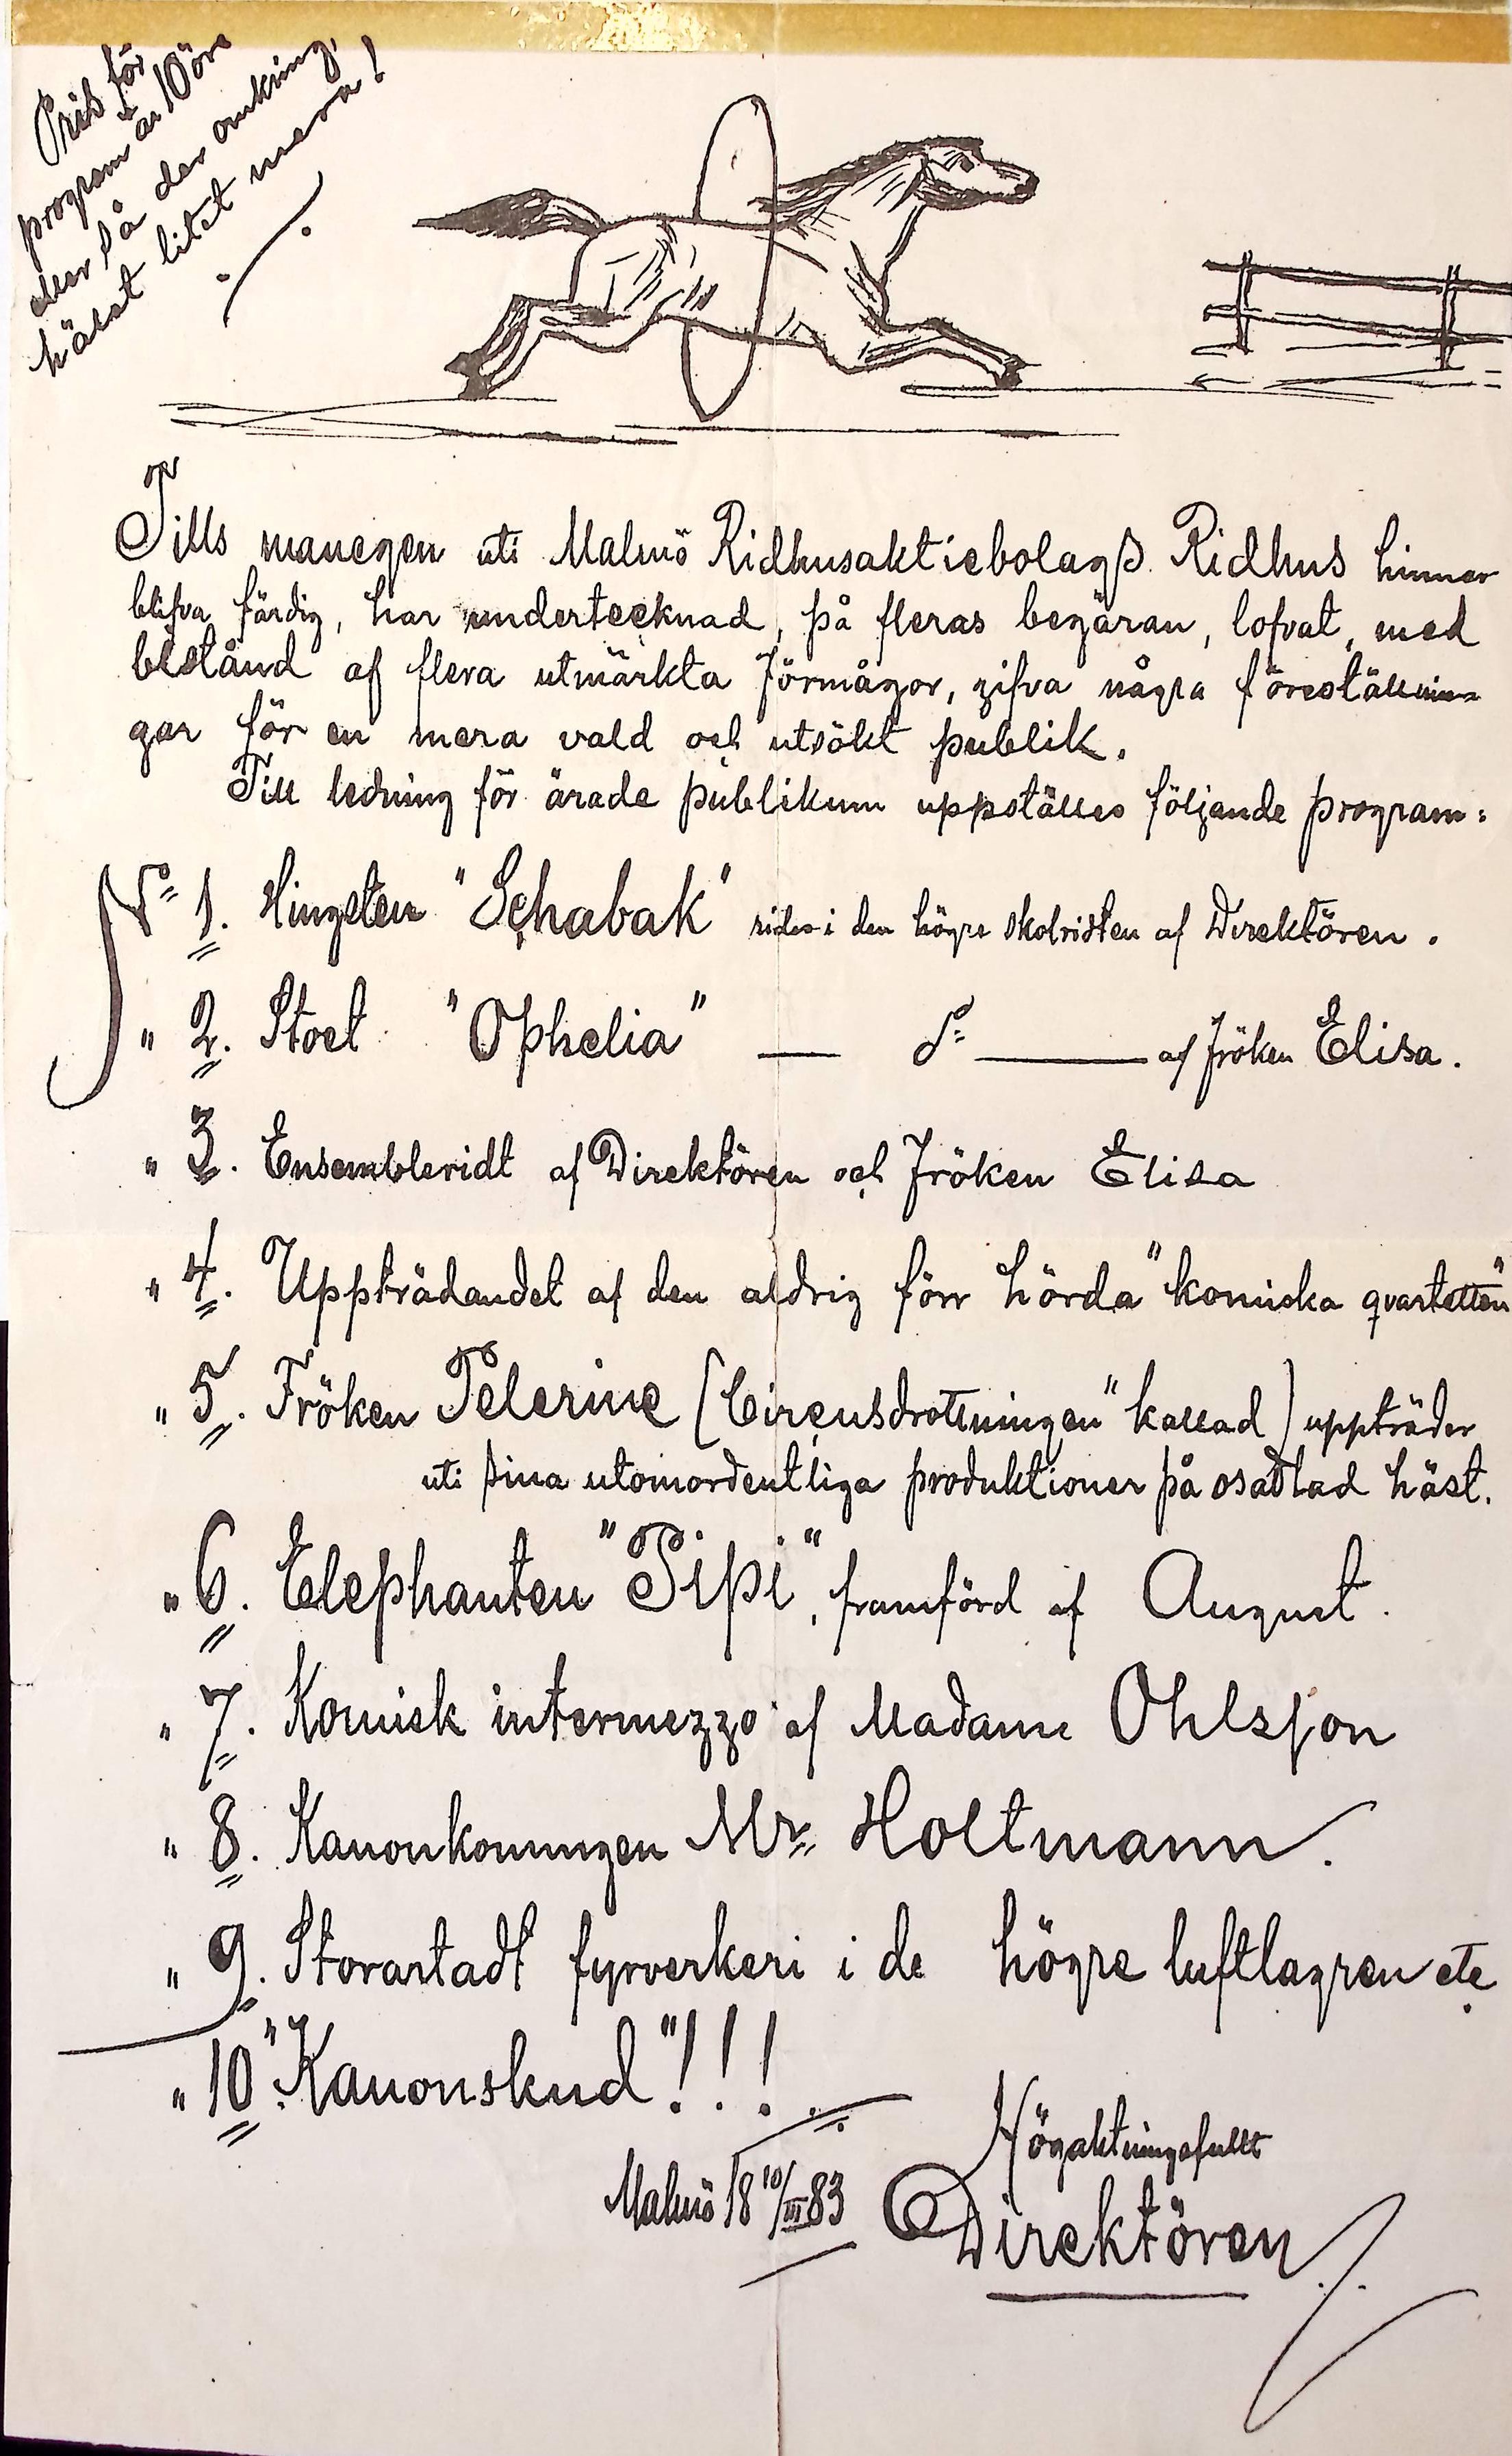 Pris för
program är 10 öre
eller så der omkring,
hälst litet mera!
Tills manegen uti Malmö Ridhusaktiebolags Ridhus hinner
blifva färdig, har undertecknad, på fleras begäran, lofvat, med
bistånd af flera utmärkta förmågor, gifva några föreställnin-
gar för en mera vald och utsökt publik.
Till ledning för ärade publikum uppställes följande program:
No 1. Hingsten "Schabak" rides i den högre skolridten af Direktören.
" 2. Stoet "Ophelia" — do — af Fröken Elisa.
" 3. Ensembleridt af Direktören och Fröken Elisa
" 4. Uppträdandet af den aldrig förr hörda "komiska qvartetten"
" 5. Fröken Pelerine (Circusdrottningen" kallad) uppträder
uti sina utomordentliga produktioner på osadlad häst.
" 6. Elephanten "Pipi", framförd af August.
" 7. Komisk intermezzo af Madame Ohlsson
" 8. Kanonkonungen Mr. Holtmann.
" 9. Storartadt fyrverkeri i de högre luftlagren etc
" 10. "Kanonskud"!!!
Högaktningsfullt
Malmö 18 10/III 83 Direktören